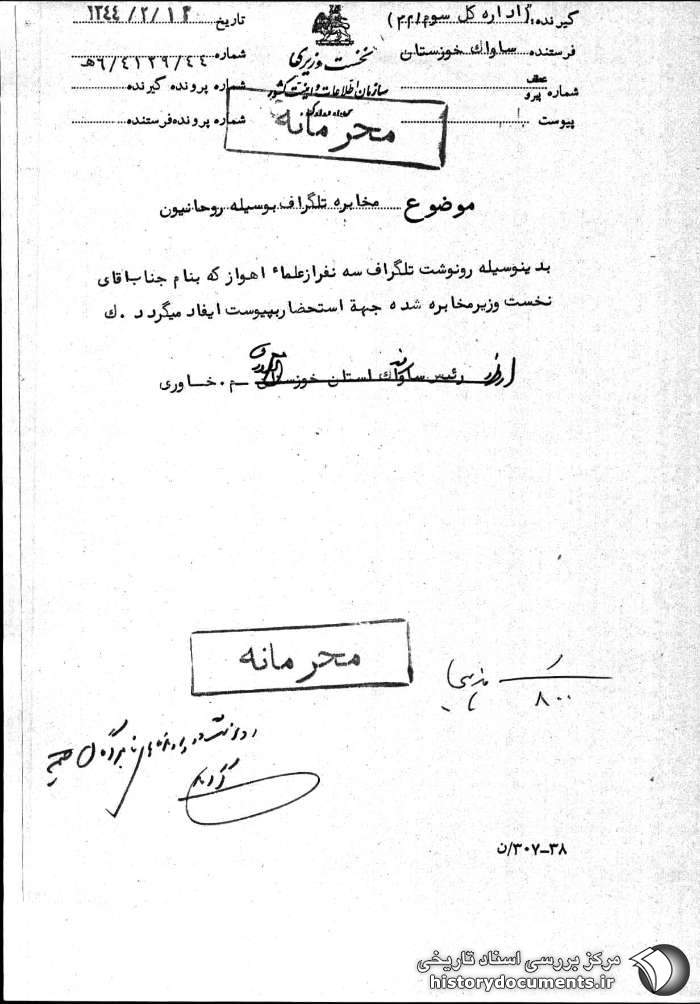 گیرنده: (اداره کل سوم م.م.م)
فرستنده ساواک خوزستان
شماره عطف پیرو
پیوست
نخست وزیری
سازمان اطلاعات و امنیت کشور
تاریخ ۱۳۴۴/۲/۱۳
شماره ۶/۴۱۲۹/۴۴ هـ
شماره پرونده گیرنده
شماره پرونده فرستنده
محرمانه
موضوع مخابره تلگراف بوسیله روحانیون
بدینوسیله رونوشت تلگراف سه نفر از علماء اهواز که بنام جناب آقای
نخست وزیر مخابره شده جهة استحضار بپیوست ایفاد میگردد . ک
رئیس ساواک استان خوزستان م. خاوری
محرمانه
۸۰۰
۳۰۷-۳۸/ن
مرکز بررسی اسناد تاریخی
historydocuments.ir